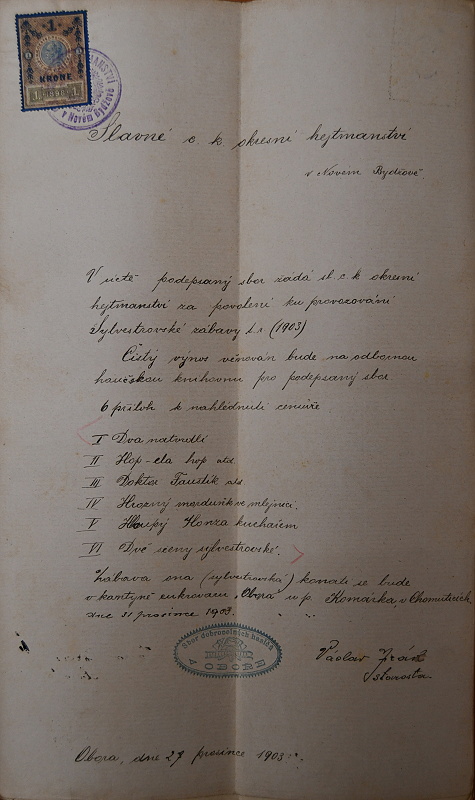 1
KRONE
1 1898 1
v Novém Bydžově
Slavné c. k. okresní hejtmanství
v Novém Bydžově.
V úctě podepsaný sbor žádá sl. c. k. okresní
hejtmanství za povolení ku provozování
Sylvestrovské zábavy t. r. (1903)
Čistý výnos věnován bude na odbornou
hasičskou knihovnu pro podepsaný sbor
6 příloh k nahlédnutí censuře.
I Dva natvrdlí
II Hop-ela hop atd.
III Doktor Faustík atd.
IV Hrozný mordunk ve mlejnici.
V Hloupý Honza kuchařem
VI Dvě sceny sylvestrovské.
Zábava ona (sylvestrovská) konati se bude
v kantýně cukrovaru „Obora" u p. Komárka v Chomuticích
dne 31 prosince 1903.
Sbor dobrovolných hasičů
v OBOŘE
Václav
starosta
Obora, dne 27 prosince 1903